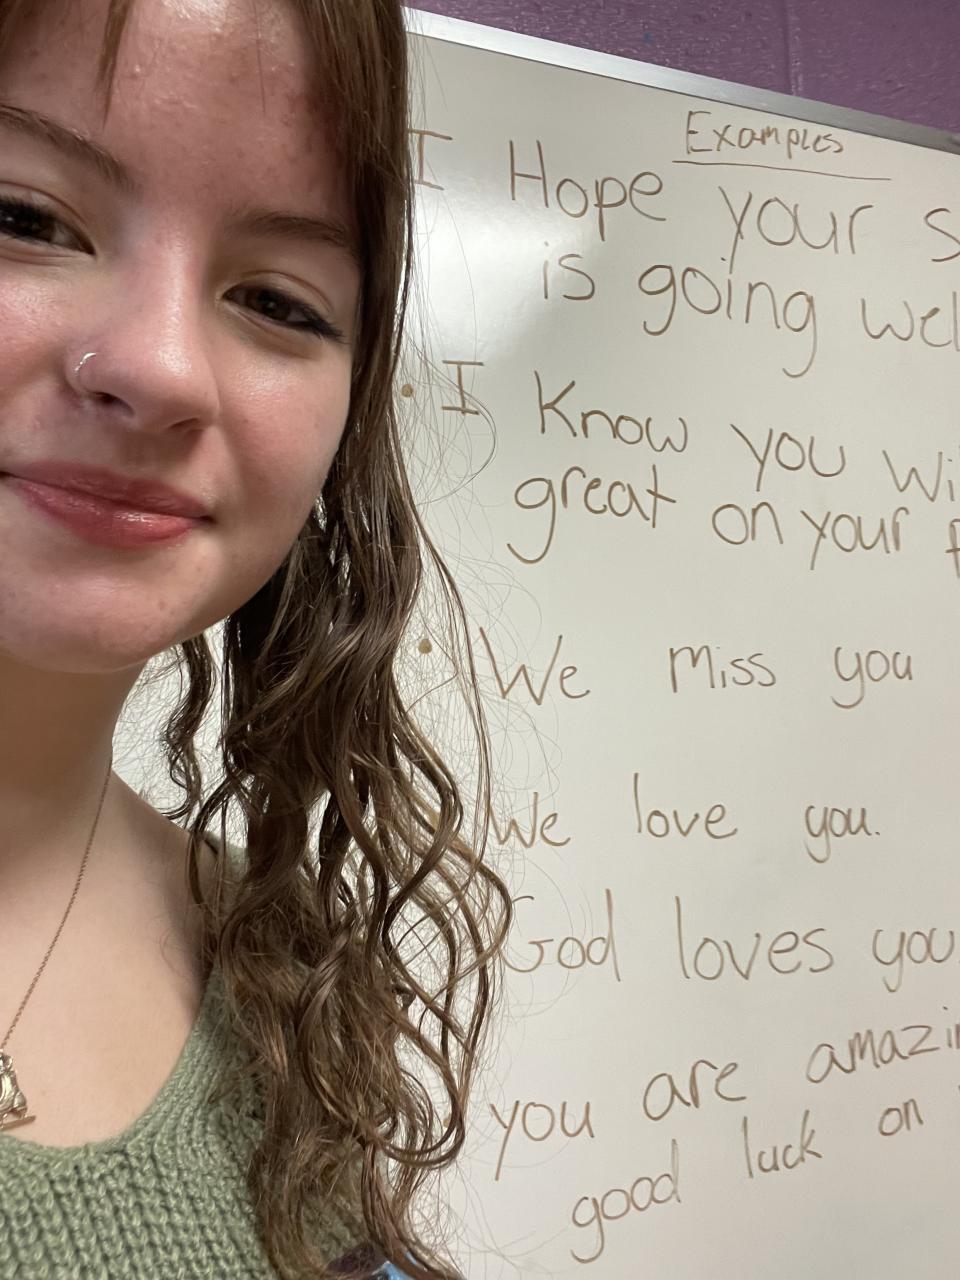 Examples
I Hope your
is going
I Know you
great on your
We miss you
We love you.
God loves you
you are
good luck on